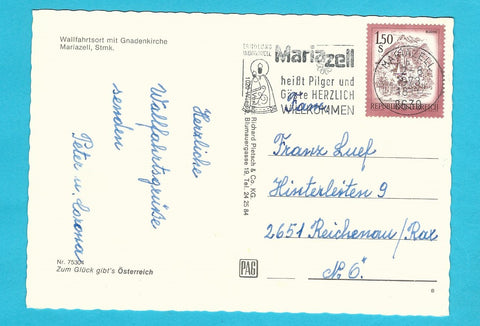 Wallfahrtsort mit Gnadenkirche
Mariazell, Stmk.
Herzliche
Wallfahrtsgrüße
senden
Peter u.
Nr. 75304
Zum Glück gibt's Österreich
Richard Pietsch & Co. KG.
Blumauergasse 19, Tel. 24 25 84
PAG
Mariazell
heißt Pilger und
Gäste HERZLICH
WILLKOMMEN
1,50
S
REPUBLIK ÖSTERREICH
8630
Fam.
Franz Luef
Hinterleiten 9
2651 Reichenau/Rax
N. Ö.